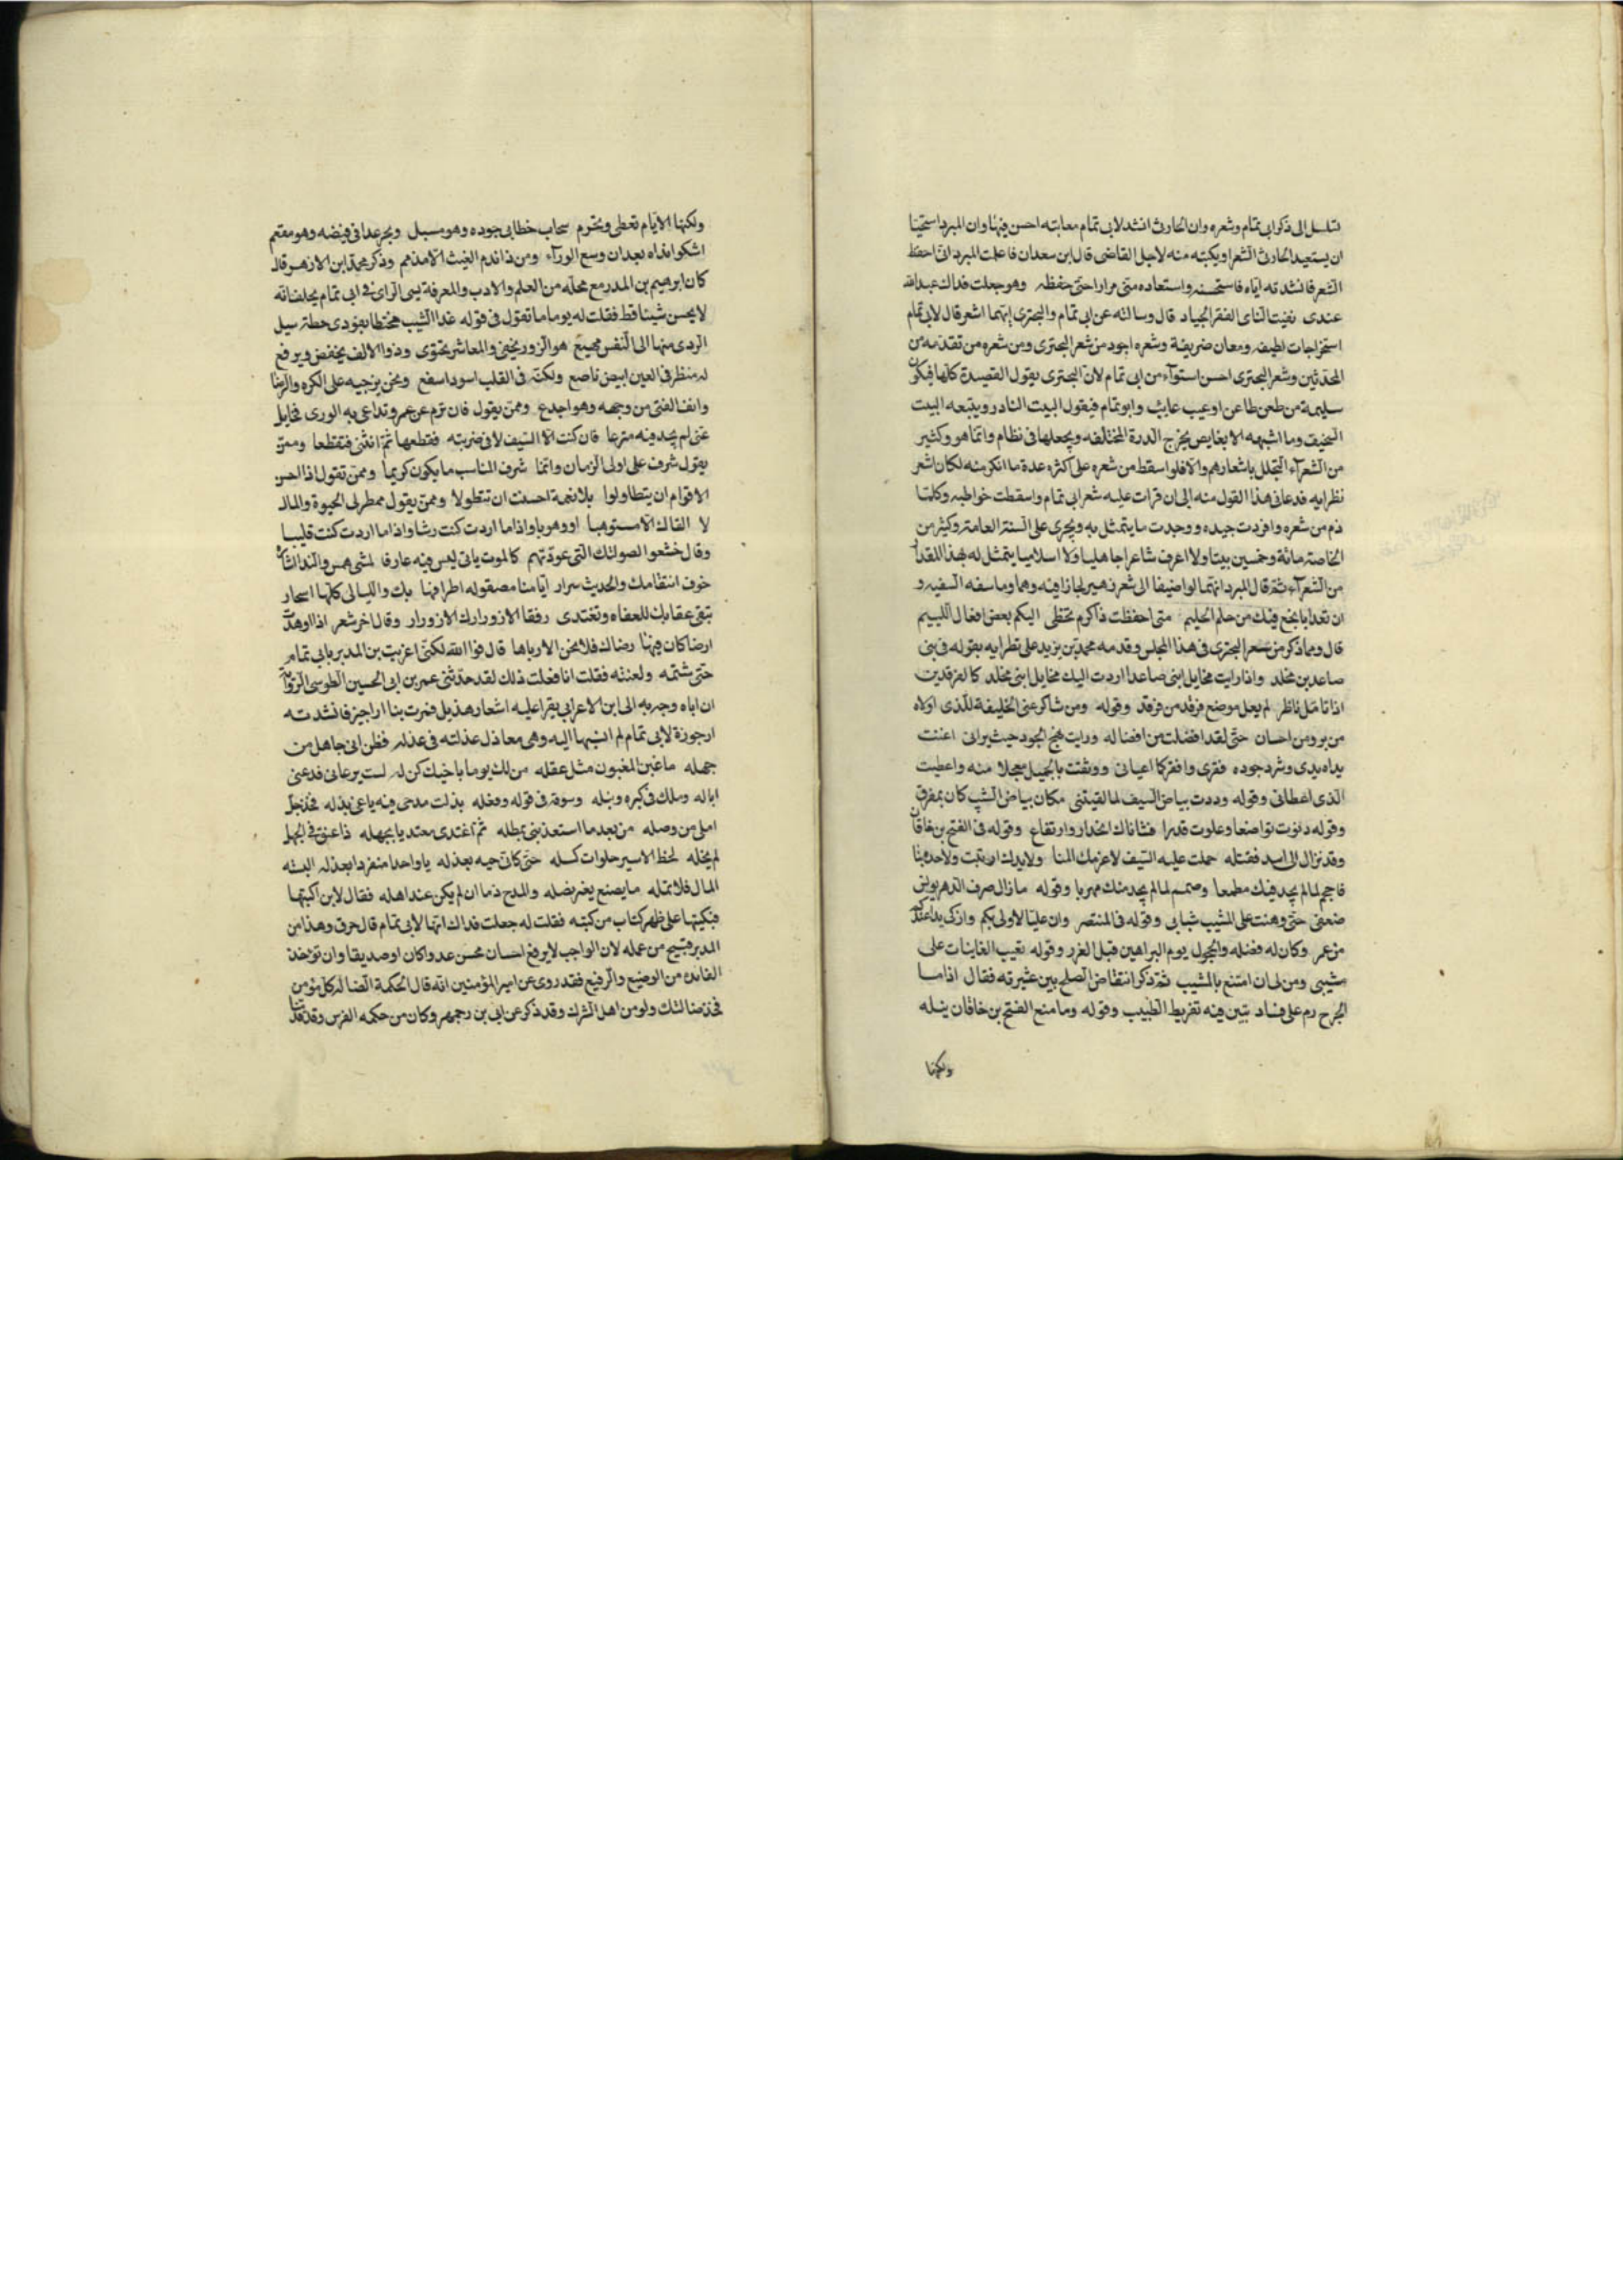 تسلسل الى ذكر ابى تمام وشعره وان الحارث انشد لابى تمام معاتبه احسن فيها وان المبرد استحيا
ان يستعيد الحارث الشعر او يكتبه منه لاجل القاضى قال ابن سعدان فاعلمت المبرد انى احفظ
الشعر فانشدته اياه فاستحسنه واستعاده منى مرارا حتى حفظه وهو جعلت فداك عبدالله
عندى نفيت النآى الفقر الجياد قال وسالته عن ابى تمام والبحترى ايهما اشعر قال لابى تمام
استخراجات لطيفه ومعان ضريفة وشعره اجود من شعر البحترى ومن شعره من تقدمه من
المحدثين وشعر البحترى احسن استوآء من ابى تمام لان البحترى يقول القصيدة كلها فيكون
سليمة من طعن طاعن او عيب عايب وابوتمام فيقول البيت النادر ويتبعه البيت
السخيف وما اشبهه الا بغايص يخرج الدرة المختلفه ويجعلها فى نظام وانما هو وكثير
من الشعرآء التجلل باشعارهم والا فلو اسقط من شعره على كثره عدة ما انكر منه لكان اشعر
نظرايه فدعانى هذا القول منه الى ان قرات عليه شعر ابى تمام واسقطت خواطبه وكلما
ذم من شعره وافردت جيده ووجدت ما يتمثل به ويجرى على السنة العامة وكثير من
الخاصة مائة وخمسين بيتا ولا اعرف شاعرا جاهليا ولا اسلاميا يتمثل له بهذا المقدار
من الشعرآء ثم قال المبرد انهما لو اضيفا الى شعر زهير لجازا فيه وهما وما سفه السفيه و
ان تعدا بابخع فيك من حلم الحليم متى احفظت ذا كرم تخطى اليكم بعض افعال اللييم
قال ومما ذكر من شعر البحترى فى هذا المجلس وقدمه محمد بن يزيد على نظرايه بقوله فى بنى
صاعد بن مخلد واذا رايت مخايل ابنى صاعد اردت اليك مخايل ابنى مخلد كالفرقدين
اذا تامل ناظر لم يعل موضع فرقد من فرقد وقوله ومن شاكر عنى الخليفة للذى اولاه
من بر ومن احسان حتى لقد افضلت من افضاله ورايت نهج الجود حيث يرانى اغنت
يداه يدى وشرد جوده فقرى وافقر كما اعيانى ووثقت بالجميل معجلا منه واعطيت
الذى اعطانى وقوله وددت بياض السيف لما لقيتنى مكان بياض الشيب كان بمفرق
وقوله دنوت تواضعا وعلوت قدرا فشاناك انحدار وارتفاع وقوله فى الفتح بن خاقان
وقد نزال الى اسد فقتله حملت عليه السيف لا عزمك انثنا ولا يدك ارتبت ولا حده نبا
فاحجم لما لم يجد فيك مطمعا وصمم لما لم يجد منك مهربا وقوله ما زال صرف الدهر يونس
ضعفى حتى وهنت على المشيب شبابى وقوله فى المنتصر وان عليا لاولى بكم وازكى يدا عندكم
من عمر وكان له فضله والحجول يوم البراهين قبل الغرر وقوله تعيب الغانيات على
مشيبى ومن لى ان امتنع بالمشيب ثم ذكر انتقاض الصلح بين عشيرته فقال اذا ما
الجرح رم على فساد تبين فيه تفريط الطبيب وقوله وما منع الفتح بن خاقان نيله
ولكنها
ولكنها الايام تعطى وتحرم سحاب خطابى جوده وهو مسبل وبحر عدانى فيضه وهو مفعم
اشكو انداه بعد ان وسع الورآء ومن ذا اندم الغيث الا مذمم وذكر محمد ابن الازهر قال
كان ابرهيم بن المدبر مع محله من العلم والادب والمعرفة يسى الراى فى ابى تمام يحلف انه
لا يحسن شيئا قط فقلت له يوما ما تقول فى قوله غدا الشيب مختطا بفودى خطة سبيل
الردى منها الى النفس مهيع هو الزور يخفى والمعاشر يحتوى وذوا الالف يخفض ويرفع
له منظر فى العين ابيض ناصع ولكنه فى القلب اسود اسفع ونحن نرجيه على الكره والرضا
وانف الفتى من وجهه وهو اجدع وممن يقول فان ترم عن عمرو تداعى به الورى فخايل
عنى لم يجد فيه مترعا فان كنت الا السيف لاقى ضربته فقطعها ثم انثنى فتقطعا وممن
يقول شرف على اولى الزمان وانما شرف المناسب ما يكون كريما وممن تقول اذا احسن
الاقوام ان يتطاولوا بلا نعمة احسنت ان تتطولا وممن يقول ممطر لى الحيوة والمال
لا القاك الا مستوهبا او وهوبا واذا ما اردت كنت رشا واذا ما اردت كنت قليبا
وقال خشعوا الصولتك التى عودتهم كالموت ياتى ليس فيه عارفا لمشى همس والندا اشاره
خوف انتقامك والحديث سرار ايامنا مصقوله اطرافها بك والليالى كلها اسحار
تبقى عقابك للعفاه وتغتدى رفقا الا زوارك الا زورار وقال اخر شعر اذا اوهدت
ارضا كان فيها رضاك فلا نحن الا رباها قال فوالله لكنى اعزيت بن المدبر بابى تمام
حتى شتمه ولعنه فقلت انا فعلت ذلك لقد حدثنى عمر بن ابى الحسين الطوسى الرواية
ان اباه وجه به الى ابن الاعرابى يقرا عليه اشعار هذيل فمرت بنا اراجيز فانشدته
ارجوزة لابى تمام لم انسبها اليه وهى معاذل عذلته فى عذله فظن انى جاهل من
جهله ما غبن المغبون مثل عقله من لك يوما باخيك كله لست يرعانى فدعنى
اباله وملك فى كبره ونبله وسوقة فى قوله وفعله بذلت مدحى فيه باغى بذله فجذ حبل
املى من وصله من بعد ما استعذبنى بمطله ثم اغتدى معتديا بجهله ذا عنق فى الجهل
لم يخله لحظ الاسير حلوات كسله حتى كانى جيه بعذله يا واحدا منفردا بعذله البسته
المال فلا تمله ما يصنع بغير نضله والمدح ذما ان لم يكن عند اهله فقال لابن اكبتها
فكتبها على ظهر كتاب من كتبه فقلت له جعلت فداك انها لابى تمام قال خرق وهذا من
المدبر قبيح من عمله لان الواجب لا يرفع احسان محسن عدوا كان او صديقا وان توخذ
الفايده من الوضيع والرفيع فقد روى عن امير المؤمنين انه قال الحكمة الضاله كل مؤمن
فخذ ضالتك ولو من اهل الشرك وقد ذكر عن ابى بن رجمهر وكان من حكمه الفرس وقد قدمنا